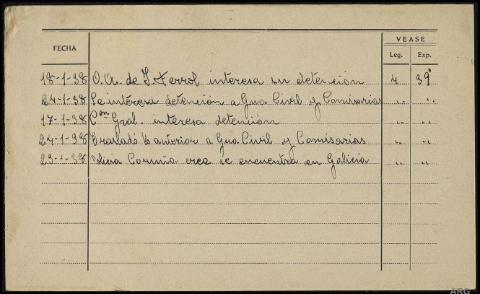 FECHA
VEASE
Leg. Exp.
18-1-38 O.A. de S. Ferrol interesa su detención 4 39
24-1-38 Se interesa detención a Gua Civil y Comisarias " "
17-1-38 Con Gral. interesa detención " "
24-1-38 Traslado anterior a Gua Civil y Comisarias " "
23-1-38 Coruña cree se encuentra en Galicia " "